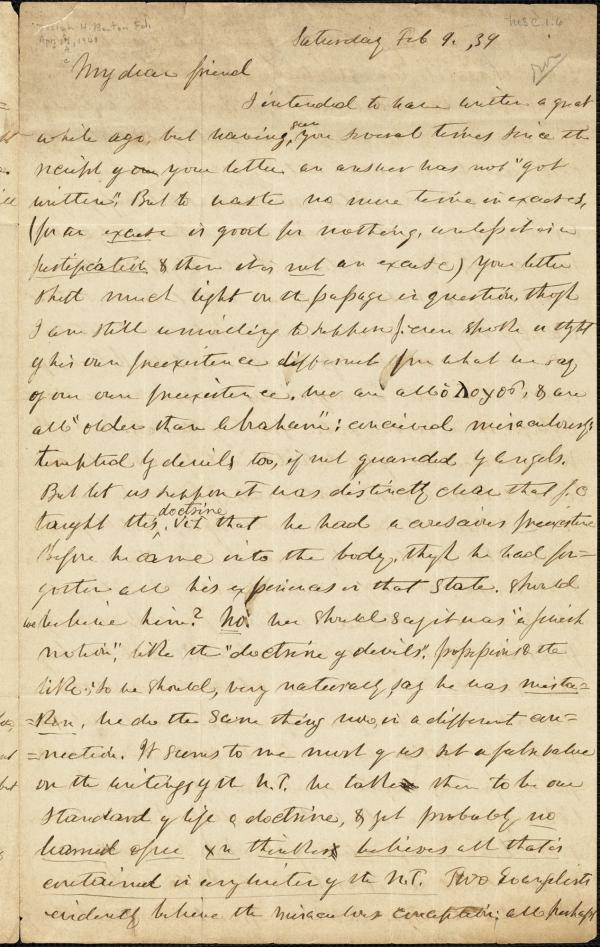 Joseph H. Benton Est.
Apr. 17, 1940
MS C.1.6
Saturday Feb 9., 39
My dear friend
I intended to have written a great
while ago, but having seen you several times since the
receipt of your letter an answer has not "got
written". But to waste no more time in excuses,
(for an excuse is good for nothing, unless it is a
justification & then it is not an excuse) Your letter
shed much light on the passage in question, tho'
I am still unwilling to suppose J. even spoke
of his own preexistence different from what we say
of our own preexistence. we are all ὁ λογος, & are
all "older than Abraham"; conceived miraculously
tempted by devils too, if not guarded by angels.
But let us suppose it was distinctly clear that J. C
taught this doctrine, viz that he had a conscious preexistence
before he came into the body, tho' he had for-
gotten all his experiences in that state. Should
we believe him? No. we should say it was "a Jewish
notion", like the "doctrine of devils". possessions & the
like; so we should, very naturally say he was mista-
=ken. we do the same thing now, in a different con=
=nection. It seems to me most of us set a false value
on the writings of the N.T. we take them to be our
standard of life & doctrine, & yet probably no
learned & free thinker believes all that is
contained in any writer of the N.T. Two Evangelists
evidently believe the miraculous conception; all perhaps